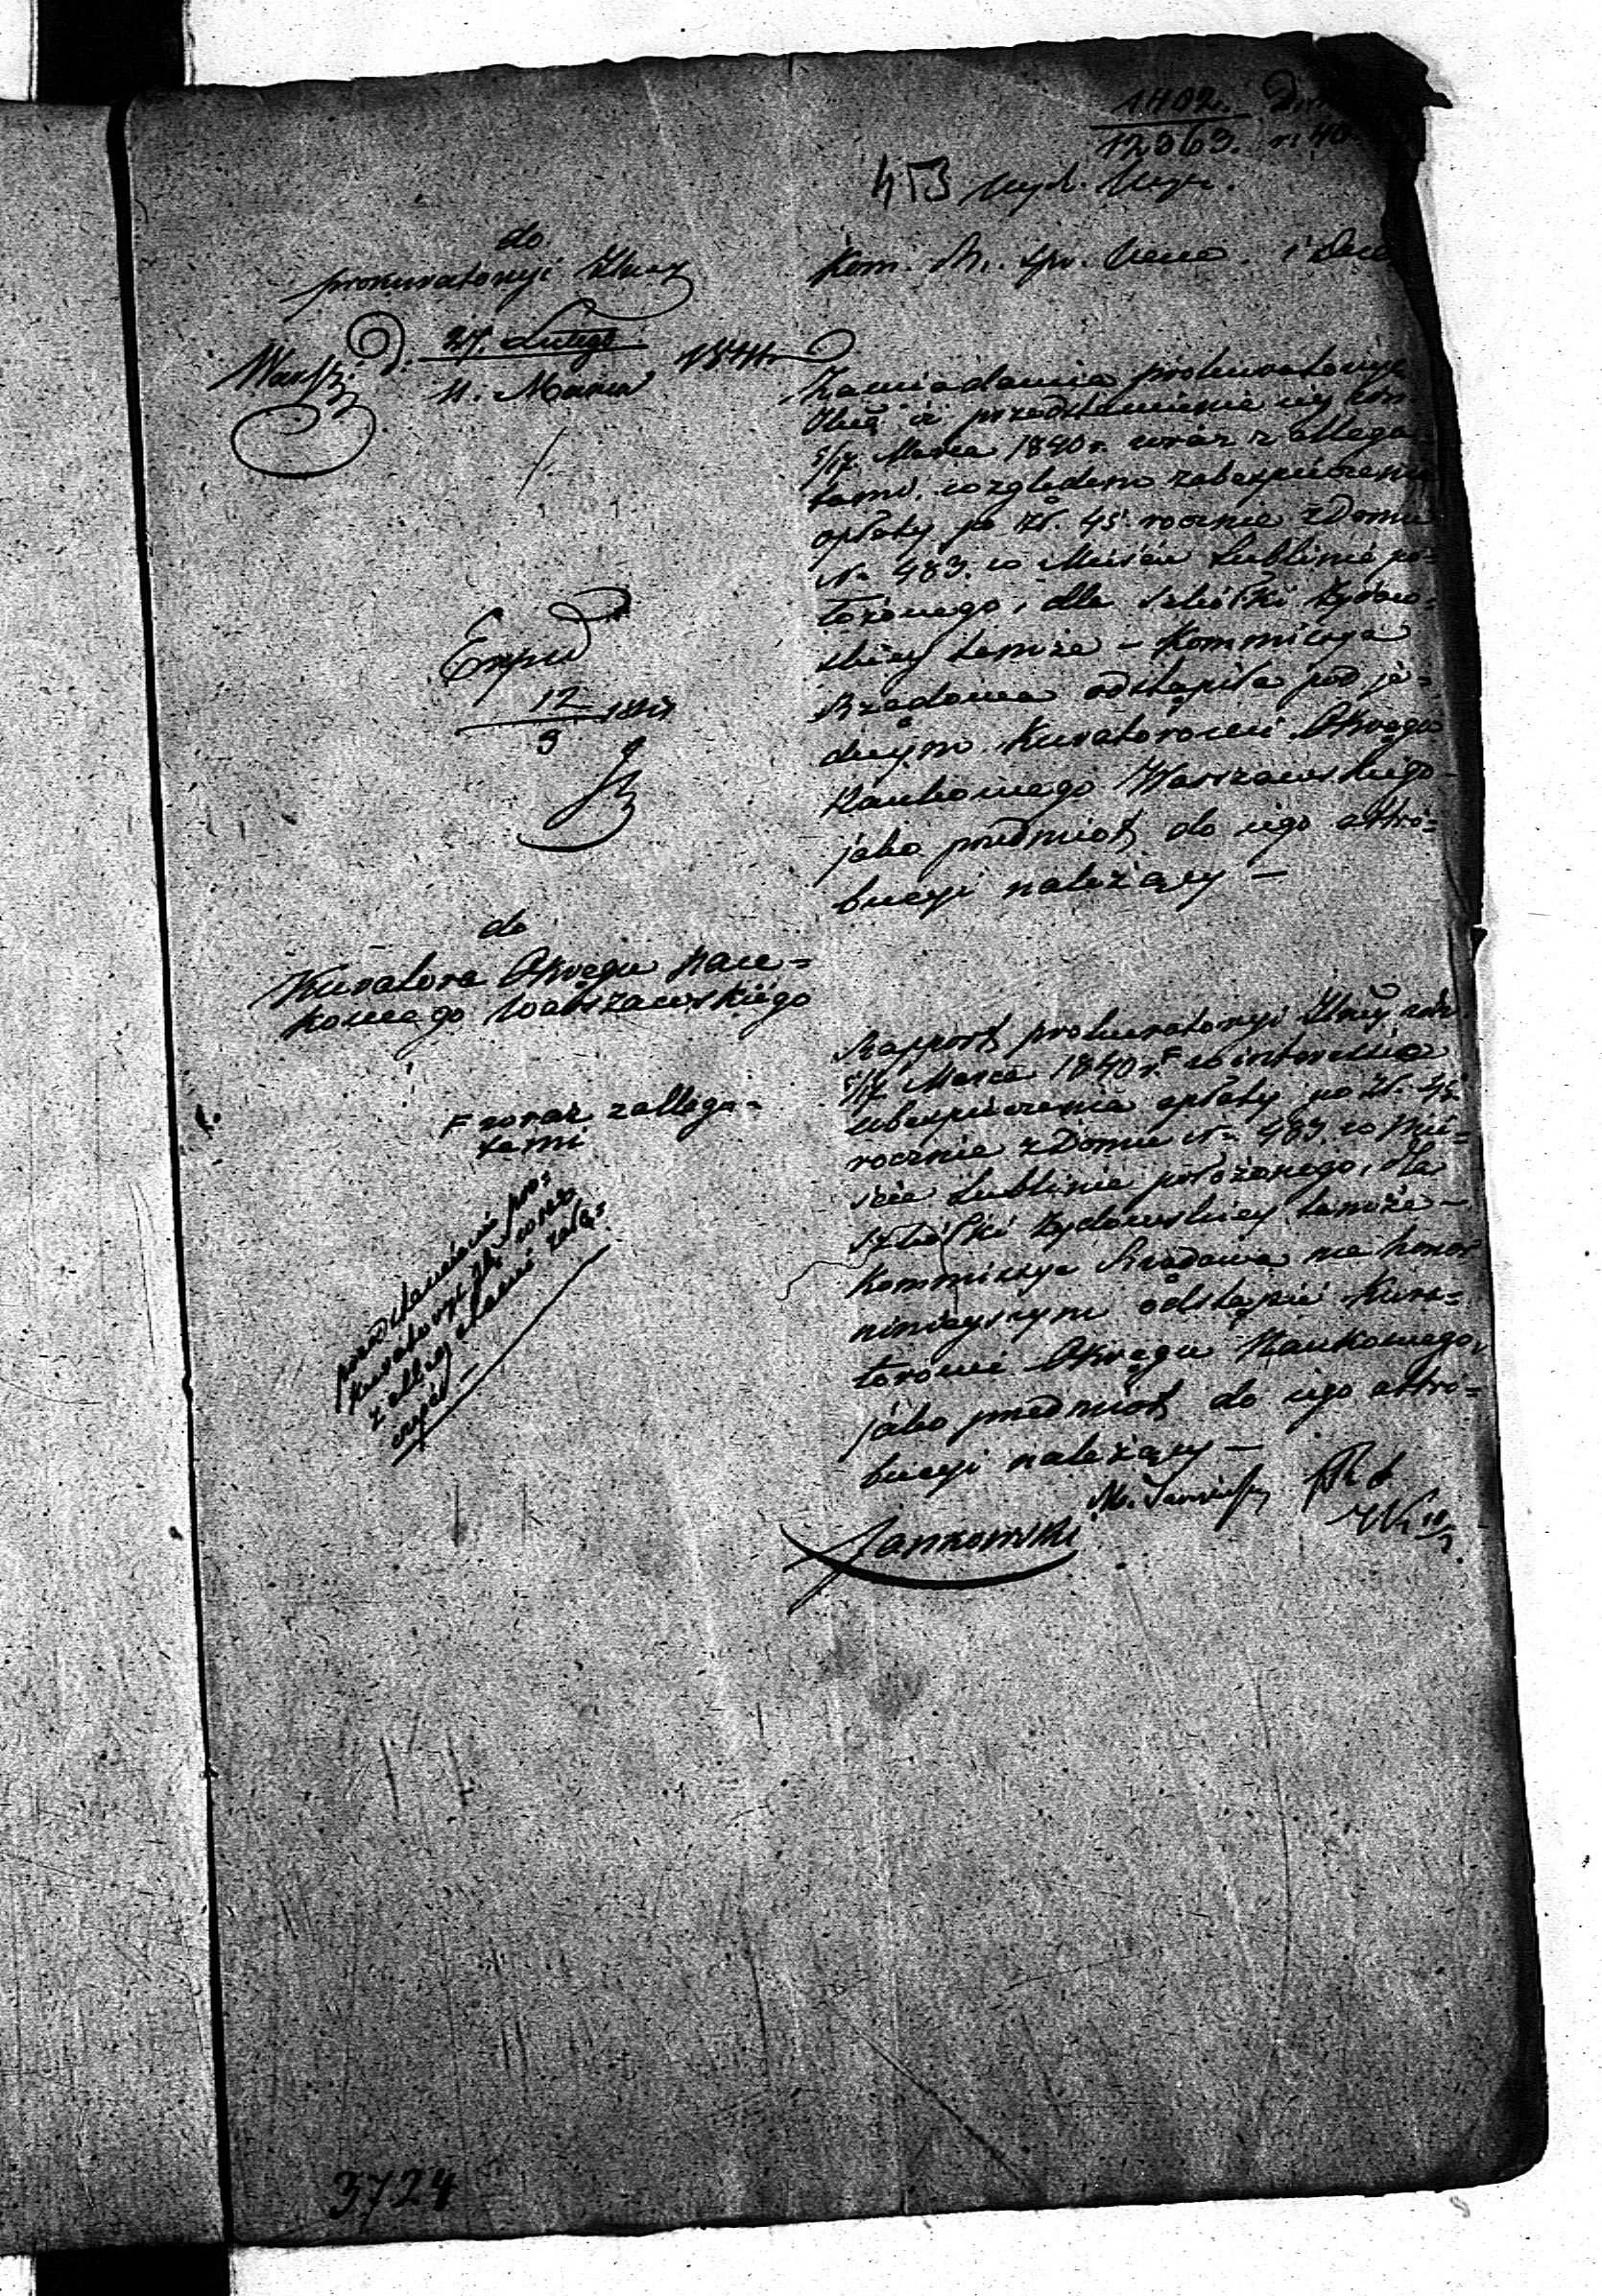 1402.
12363. r. 40
453 Wyd. Wyzn.
do
prokuratoryi
Kom. R. Spr. Wewn. i Duc
Warsz. d. 27. Lutego 1841
11. Marca
Zawiadamia prokuratoryą
iż przedstawienie iey z dn.
5/17. Marca 1840 r. wraz z allega-
tami, względem zabezpieczenia
opłaty po zł. 45. rocznie z Domu
Nr 483. w Mieście Lublinie po-
łożonego, dla szkółki żydow-
skiey tamże – Kommissya
Rządowa odstąpiła pod je-
dnym Kuratorowi Okręgu
Naukowego Warszawskiego
jako przedmiot do iego attry-
bucyi należący –
Exped
12
3
do
Kuratora Okręgu Nau=
kowego Warszawskiego
Rapport prokuratoryi
5/17. Marca 1840 r. F w interessie
ubezpieczenia opłaty po zł. 45
rocznie z Domu Nr 483. w Mie=
ście Lublinie położonego, dla
szkółki żydowskiey tamże –
Kommissya Rządowa ma honor
ninieyszym odstąpić Kura=
torowi Okręgu Naukowego,
jako przedmiot do iego attry=
bucyi należący –
F wraz z allega=
tami
przedstawienie pro=
kuratoryi wraz
z allegatami załą=
czyć –
Jankowski
3724